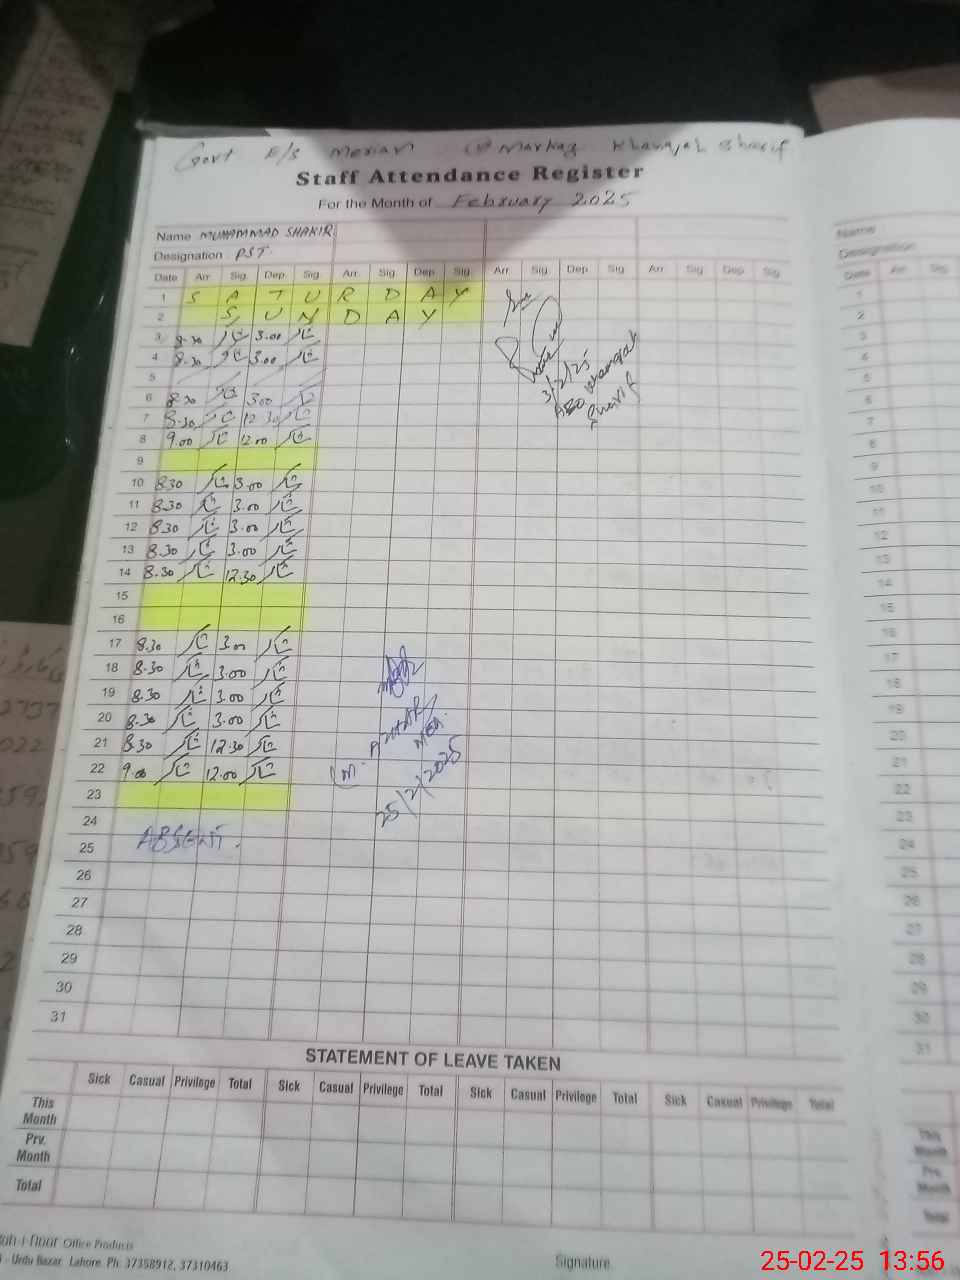 Govt E/S Merian Markaz Khanqah Sharif
Staff Attendance Register
For the Month of February 2025
Name MUHAMMAD SHAKIR
Designation PST
Date Arr. Sig. Dep. Sig. Arr. Sig. Dep. Sig. Arr. Sig. Dep. Sig. Arr. Sig. Dep. Sig.
1 S A T U R D A Y
2 S U N D A Y
3 8.30 3.00
4 8.30 3.00
5
6 8.30 3.00
7 8.30 12.30
8 9.00 12.00
9
10 8.30 3.00
11 8.30 3.00
12 8.30 3.00
13 8.30 3.00
14 8.30 12.30
15
16
17 8.30 3.00
18 8.30 3.00
19 8.30 3.00
20 8.30 3.00
21 8.30 12.30
22 9.00 12.00
23
24
25 ABSENT.
26
27
28
29
30
31
3/2/25
AEO Khanqah
Sharif
(M. AZHAR
MEA.
25/2/2025
STATEMENT OF LEAVE TAKEN
Sick Casual Privilege Total Sick Casual Privilege Total Sick Casual Privilege Total Sick Casual Privilege Total
This Month
Prv. Month
Total
Office Products
Urdu Bazar. Lahore. Ph. 37358912, 37310463
Signature
Name
Designation
Date Arr. Sig.
1
2
3
4
5
6
7
8
9
10
11
12
13
14
15
16
17
18
19
20
21
22
23
24
25
26
27
28
29
30
31
This Month
Prv. Month
Total
25-02-25 13:56